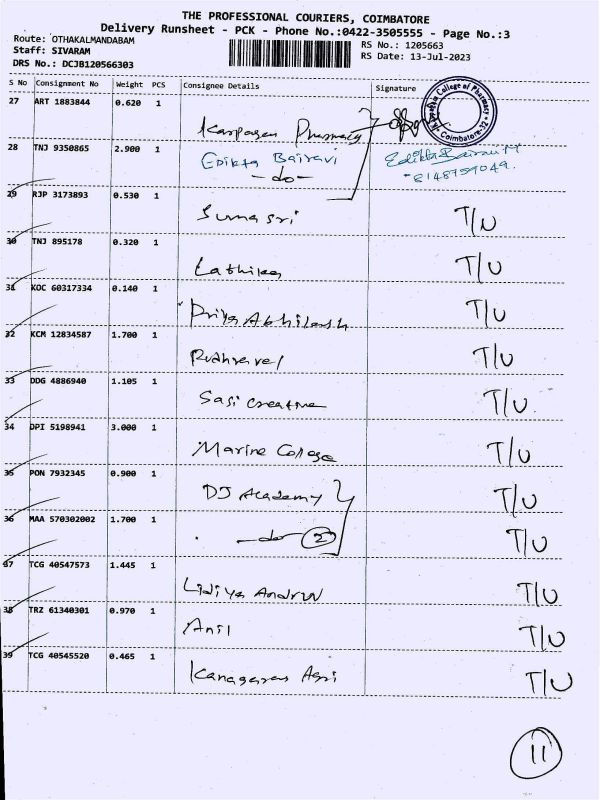 THE PROFESSIONAL COURIERS, COIMBATORE
Delivery Runsheet - PCK - Phone No.:0422-3505555 - Page No.:3
Route: OTHAKALMANDABAM RS No.: 1205663
Staff: SIVARAM RS Date: 13-Jul-2023
DRS No.: DCJB120566303
S No Consignment No Weight PCS Consignee Details Signature
27 ART 1883844 0.620 1
Karpagam Pharmacy
College of Pharmacy Coimbatore-32
28 TNJ 9350865 2.900 1 Edikta Bairavi
-do- 8148759049.
29 RJP 3173893 0.530 1
Suma sri T/U
30 TNJ 895178 0.320 1
Lathika T/U
31 KOC 60317334 0.140 1
Priya Abhilash T/U
32 KCM 12834587 1.700 1
Rudhravel T/U
33 DDG 4886940 1.105 1
Sasi creative T/U
34 DPI 5198941 3.000 1
Marine College T/U
35 PON 7932345 0.900 1
DJ Academy T/U
36 MAA 570302002 1.700 1
-do- 2 T/U
37 TCG 40547573 1.445 1
Lidiya Andrw T/U
38 TRZ 61340301 0.970 1
Anil T/U
39 TCG 40545520 0.465 1
Kanagaras Agri T/U
11